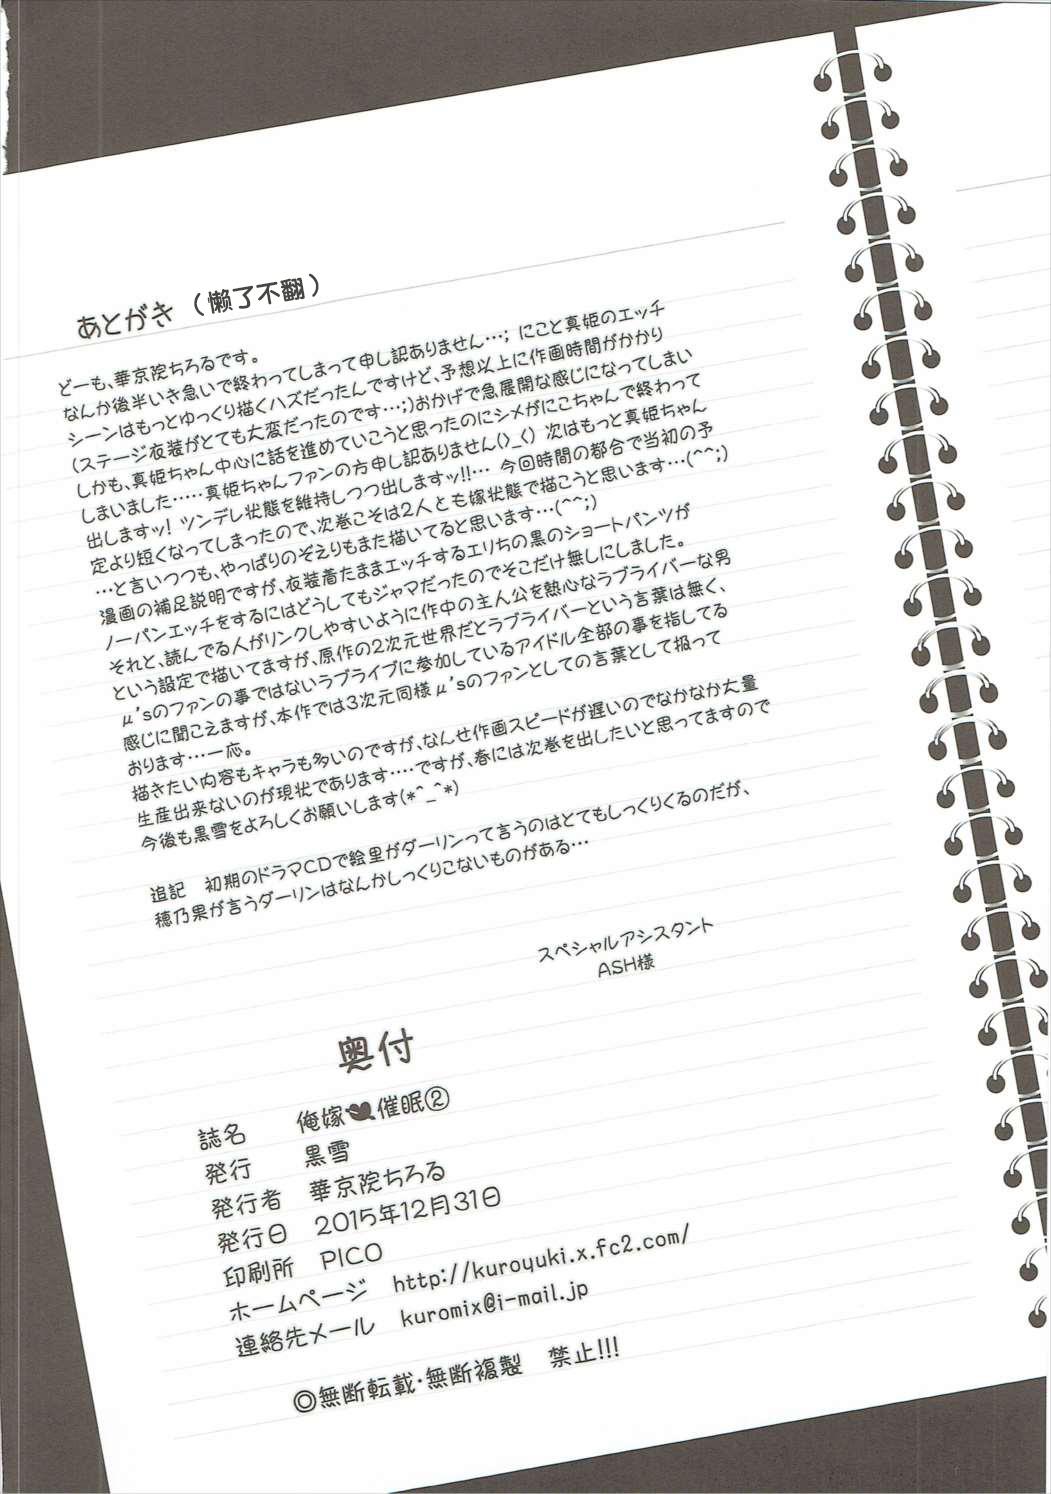 あとがき（懒了不翻）
どーも、華京院ちろるです。
なんか後半いき急いで終わってしまって申し訳ありません…; にこと真姫のエッチ
シーンはもっとゆっくり描くハズだったんですけど、予想以上に作画時間がかかり
(ステージ衣装がとても大変だったのです…;)おかげで急展開な感じになってしまい
しかも、真姫ちゃん中心に話を進めていこうと思ったのにシメがにこちゃんで終わって
しまいました‥‥‥真姫ちゃんファンの方申し訳ありません(>_<) 次はもっと真姫ちゃん
出しますッ! ツンデレ状態を維持しつつ出しますッ!!… 今回時間の都合で当初の予
定より短くなってしまったので、次巻こそは2人とも嫁状態で描こうと思います…(^^;)
…と言いつつも、やっぱりのぞえりもまた描いてると思います…(^^;)
漫画の補足説明ですが、衣装着たままエッチするエリちの黒のショートパンツが
ノーパンエッチをするにはどうしてもジャマだったのでそこだけ無しにしました。
それと、読んでる人がリンクしやすいように作中の主人公を熱心なラブライバーな男
という設定で描いてますが、原作の2次元世界だとラブライバーという言葉は無く、
μ'sのファンの事ではないラブライブに参加しているアイドル全部の事を指してる
感じに聞こえますが、本作では3次元同様μ'sのファンとしての言葉として扱って
おります…一応。
描きたい内容もキャラも多いのですが、なんせ作画スピードが遅いのでなかなか大量
生産出来ないのが現状であります‥‥ですが、春には次巻を出したいと思ってますので
今後も黒雪をよろしくお願いします(*^_^*)
追記　初期のドラマCDで絵里がダーリンって言うのはとてもしっくりくるのだが、
穂乃果が言うダーリンはなんかしっくりこないものがある…
スペシャルアシスタント
ASH様
奥付
誌名　俺嫁催眠②
発行　黒雪
発行者　華京院ちろる
発行日　2015年12月31日
印刷所　PICO
ホームページ　http://kuroyuki.x.fc2.com/
連絡先メール　kuromix@i-mail.jp
◎無断転載・無断複製　禁止!!!